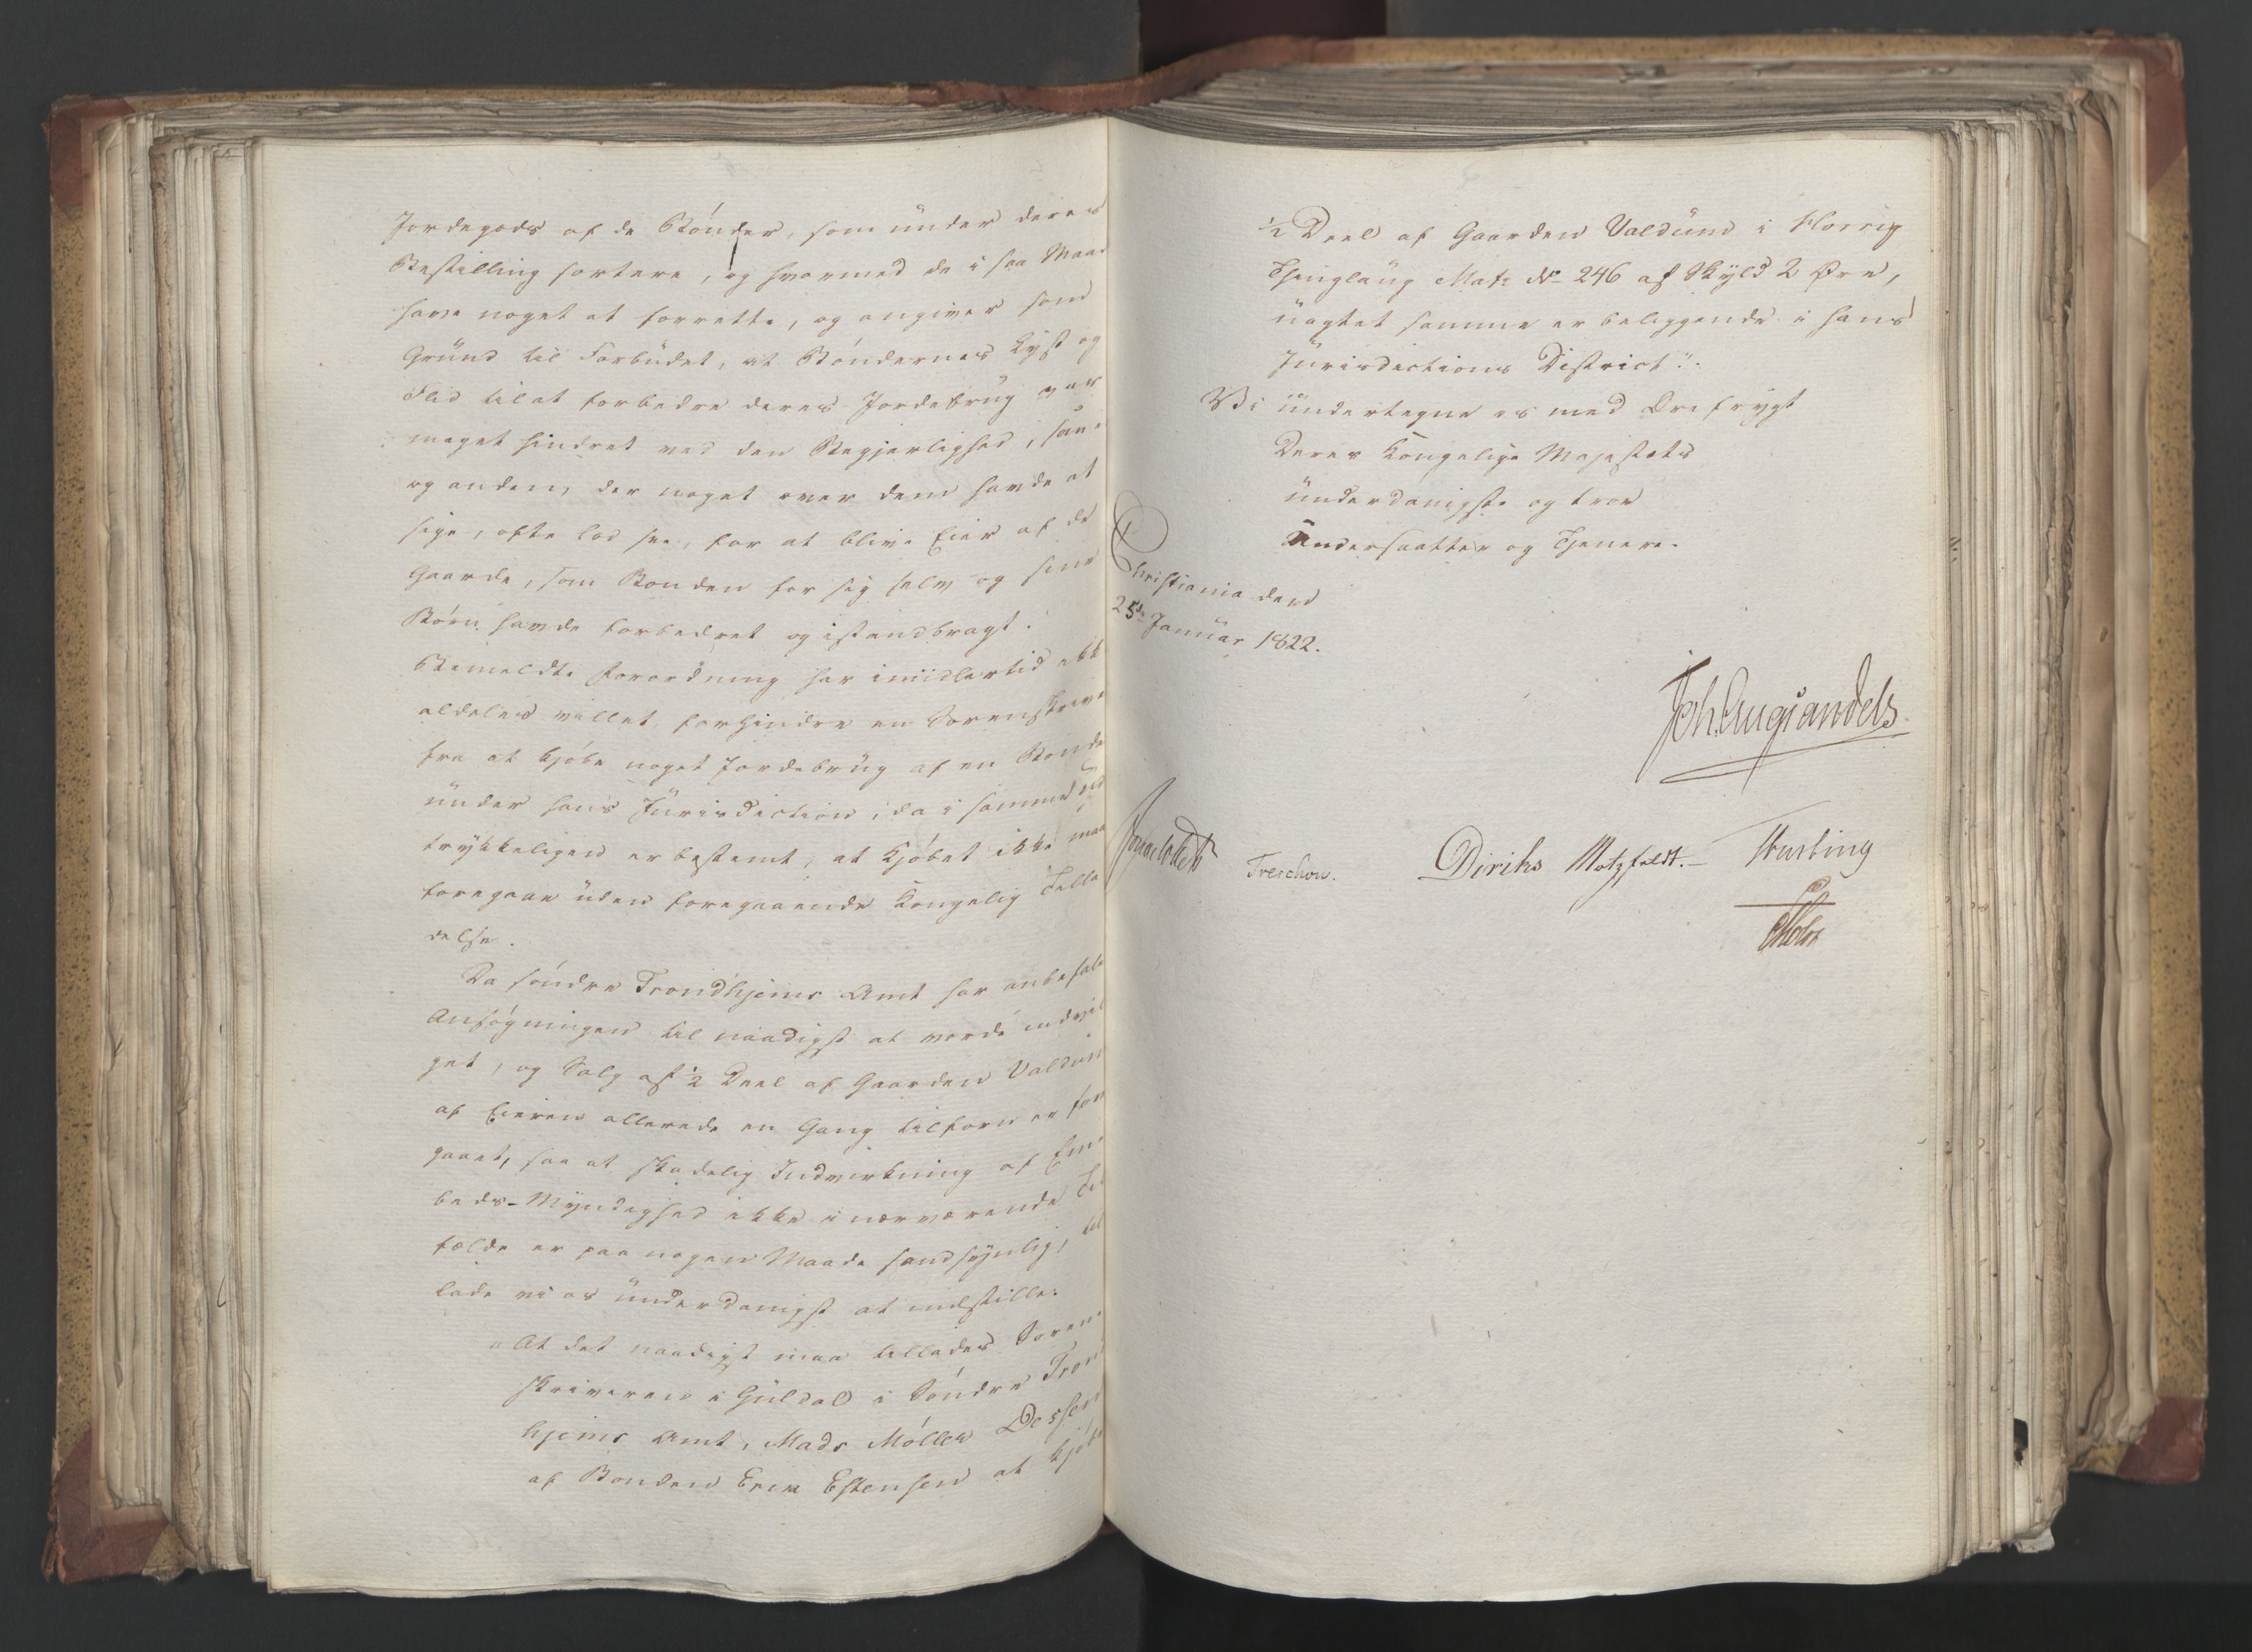 Jordegods af de Bönder, som under deres
Bestilling sortere, og hvormed de i saa Maad
have noget at forrette, og angiver som
Grund til Forbudet, at Böndernes Lyst og
Flid til at forbedre deres Jordebrug var
meget hindret ved den Begjerlighed, een
og anden, der noget over dem havde at
sige, ofte lod see, for at blive Eier af de
Gaarde, som Bonden for sig selv og sine
Börn havde forbedret og istandbragt.
Bemeldte Forordning har imidlertid ikke
aldeles villet forhindre en Sorenskrive
fra at kjöbe noget Jordebrug af en Bonde
under hans Jurisdiction, da i samme ud
trykkeligen er bestemt, at Kjöbet ikke maa
foregaae uden foregaaende Kongelig Tilla
delse.
Da söndre Trondhjems Amt har anbefalet
Ansögningen til naadigst at vorde indvil
get, og Salg af ½ Deel af Gaarden Valdum
af Eieren allerede en Gang tilforn er fore
gaaet, saa at skadelig Indvirkning af Em
beds-Myndighed ikke i nærværende Til
fælde er paa nogen Maade sandsynlig, til
lade vi os underdanigst at indstille:
"At det naadigst maa tillades Soren
skriveren i Guldal i Söndre Trond
hjems Amt, Mads Möller Dessen
af Bonden Erik Estensen at kjöbe
½ Deel af Gaarden Valdum i Horrig
Thinglaug Mat: No 246 af Skyld 2 Øre,
uagtet samme er beliggende i hans
Jurisdictions District".
Vi undertegne os med Ærefrygt
Deres Kongelige Majestæts
underdanigste og troe
Undersaatter og Tjenere.
Christiania den
25de Januar 1822.
Joh. Aug. Sandels
Sommerhielm Treschow. Diriks Motzfeldt. Hasting
Holst